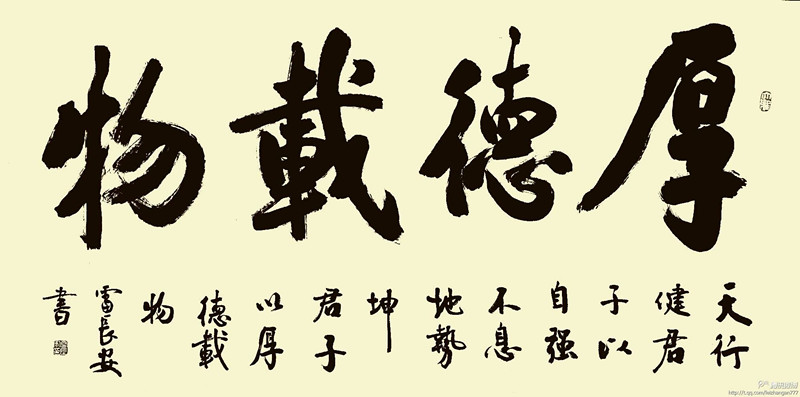 厚德載物
天行
健君
子以
自强
不息
地勢
坤
君子
以厚
德載
物
雷長安
書
腾讯微博